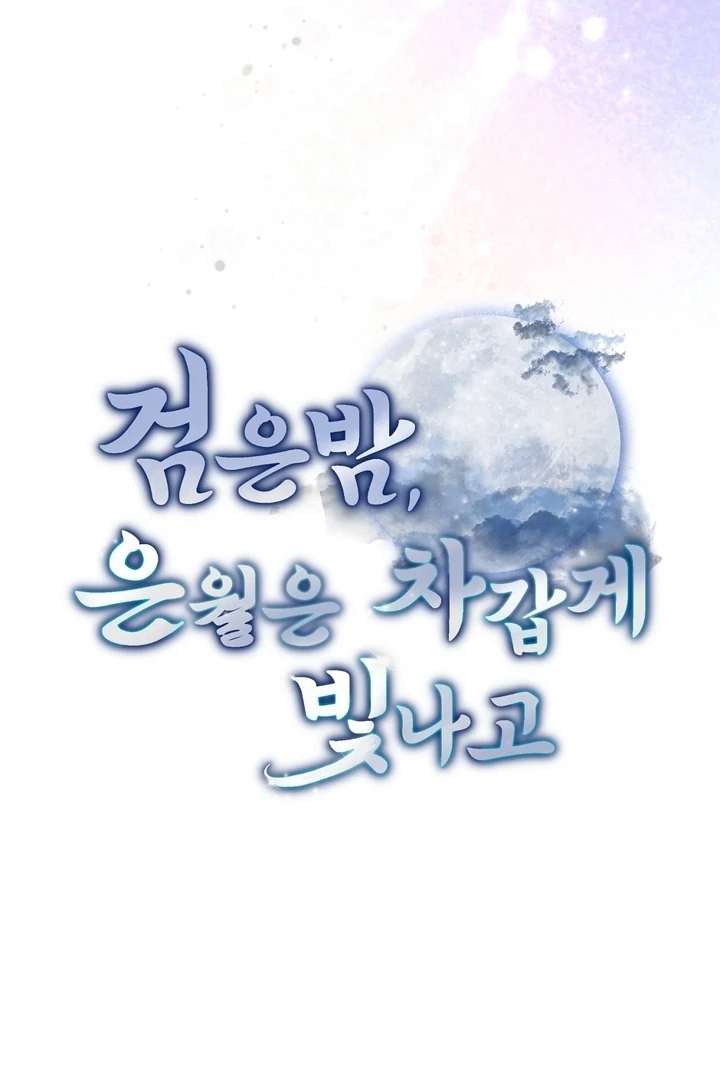 검은밤,
은월은 차갑게
빛나고